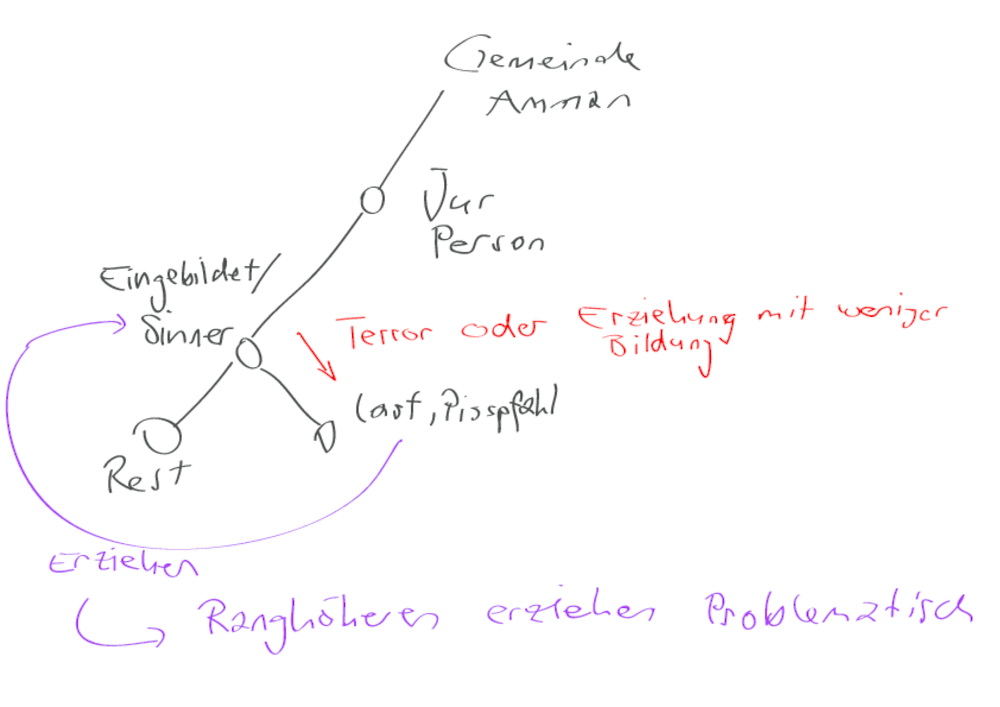 Gemeinde
Amman
Jur
Person
Eingebildet/
Sinner
Terror oder Erziehung mit weniger
Bildung
Last, Pisspfahl
Rest
Erziehen
Ranghöheren erziehen Problematisch